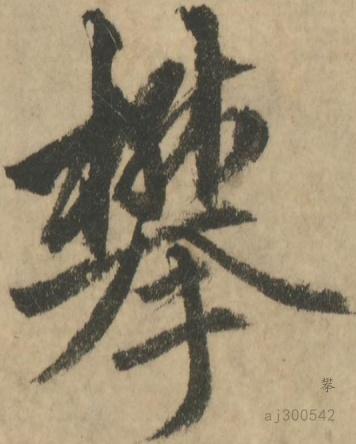 攀
攀
aj300542